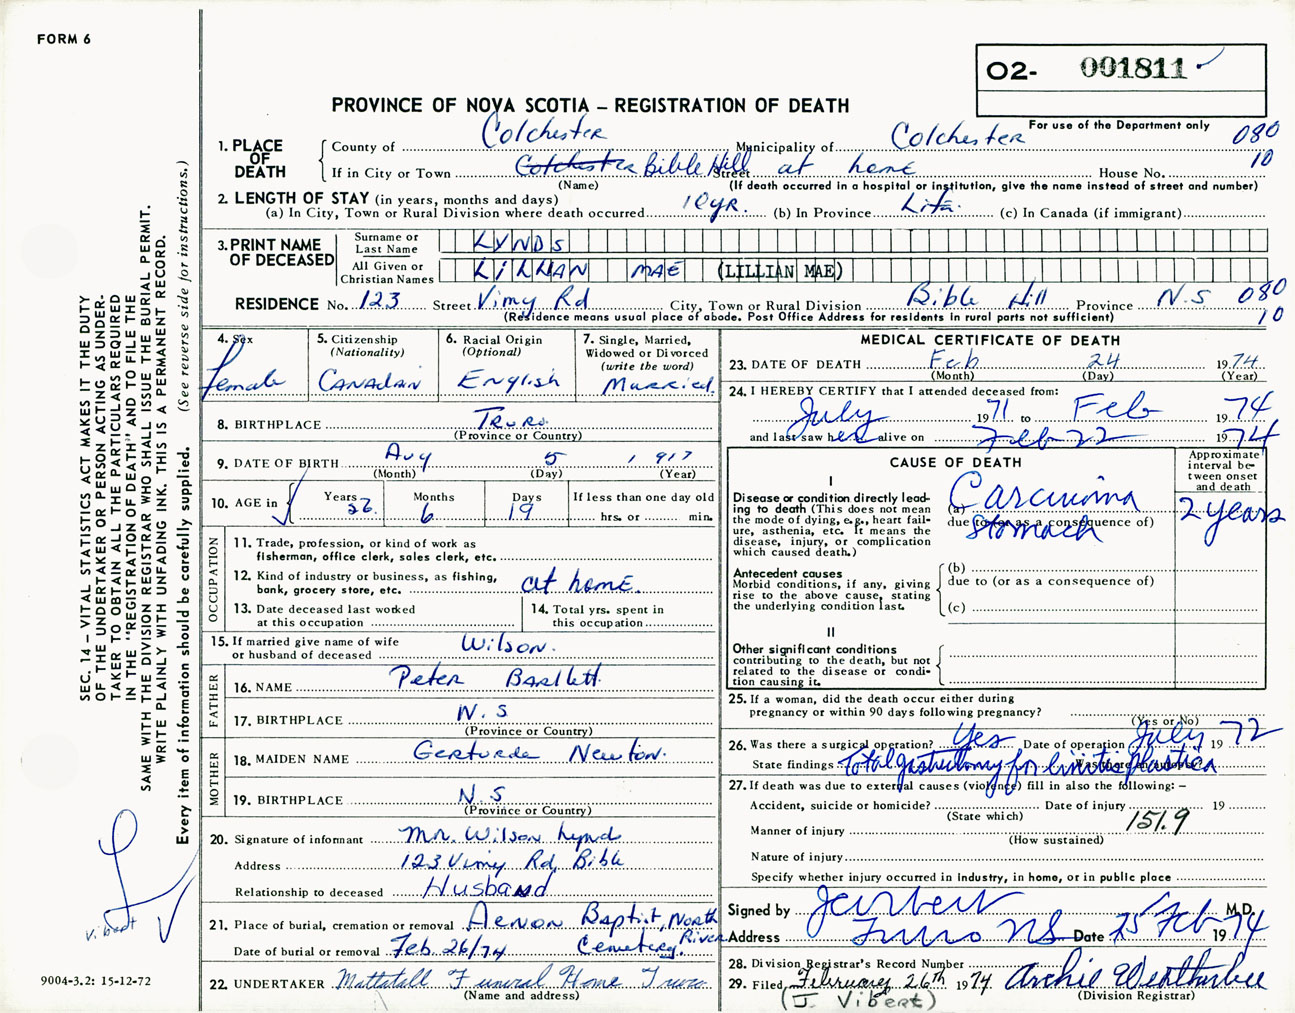 FORM 6
O2- 001811
PROVINCE OF NOVA SCOTIA – REGISTRATION OF DEATH
For use of the Department only
1. PLACE OF DEATH
County of Colchester Municipality of Colchester 080
If in City or Town Colchester Bible Hill Street at home House No. 10
(Name) (If death occurred in a hospital or institution, give the name instead of street and number)
2. LENGTH OF STAY (in years, months and days)
(a) In City, Town or Rural Division where death occurred 10 yr. (b) In Province Life. (c) In Canada (if immigrant)
3. PRINT NAME OF DECEASED
Surname or Last Name LYNDS
All Given or Christian Names LILLIAN MAE (LILLIAN MAE)
RESIDENCE No. 123 Street Vimy Rd City, Town or Rural Division Bible Hill Province N.S 080
(Residence means usual place of abode. Post Office Address for residents in rural parts not sufficient) 10
4. Sex female
5. Citizenship (Nationality) CANADIAN
6. Racial Origin (Optional) English
7. Single, Married, Widowed or Divorced (write the word) Married.
8. BIRTHPLACE Truro.
(Province or Country)
9. DATE OF BIRTH Aug 5 1917
(Month) (Day) (Year)
10. AGE in Years Months 6 Days 19 If less than one day old hrs. or min.
OCCUPATION
11. Trade, profession, or kind of work as fisherman, office clerk, sales clerk, etc.
12. Kind of industry or business, as fishing, bank, grocery store, etc. at home.
13. Date deceased last worked at this occupation
14. Total yrs. spent in this occupation
15. If married give name of wife or husband of deceased Wilson.
FATHER
16. NAME Peter Bartlett.
17. BIRTHPLACE N.S
(Province or Country)
MOTHER
18. MAIDEN NAME Gerturde Newton.
19. BIRTHPLACE N.S
(Province or Country)
20. Signature of informant Mr. Wilson Lynd
Address 123 Vimy Rd, Bible
Relationship to deceased Husband
21. Place of burial, cremation or removal Aenon Baptist, North River
Date of burial or removal Feb. 26/74 Cemetery.
22. UNDERTAKER Mattatall Funeral Home Truro.
(Name and address)
MEDICAL CERTIFICATE OF DEATH
23. DATE OF DEATH Feb 24 1974
(Month) (Day) (Year)
24. I HEREBY CERTIFY that I attended deceased from:
July 1971 to Feb 1974
and last saw her alive on Feb 22 1974
CAUSE OF DEATH
Approximate interval between onset and death
I
Disease or condition directly leading to death (This does not mean the mode of dying, e.g., heart failure, asthenia, etc. It means the disease, injury, or complication which caused death.)
(a) Carcinoma 2 years
due to (or as a consequence of)
Stomach
Antecedent causes
Morbid conditions, if any, giving rise to the above cause, stating the underlying condition last.
(b)
due to (or as a consequence of)
(c)
II
Other significant conditions
contributing to the death, but not related to the disease or condition causing it.
25. If a woman, did the death occur either during pregnancy or within 90 days following pregnancy?
(Yes or No)
26. Was there a surgical operation? Yes Date of operation July 1972
State findings Total gastrectomy for linitis plastica Was there an autopsy?
27. If death was due to external causes (violence) fill in also the following: –
Accident, suicide or homicide? Date of injury 19
(State which)
Manner of injury 151.9
(How sustained)
Nature of injury
Specify whether injury occurred in industry, in home, or in public place
Signed by M.D.
Address Truro NS Date 25 Feb 1974
28. Division Registrar's Record Number
29. Filed, February 26th 1974 Archie Weatherbee
(J. Vibert) (Division Registrar)
SEC. 14 – VITAL STATISTICS ACT MAKES IT THE DUTY
OF THE UNDERTAKER OR PERSON ACTING AS UNDER-
TAKER TO OBTAIN ALL THE PARTICULARS REQUIRED
IN THE "REGISTRATION OF DEATH" AND TO FILE THE
SAME WITH THE DIVISION REGISTRAR WHO SHALL ISSUE THE BURIAL PERMIT.
WRITE PLAINLY WITH UNFADING INK. THIS IS A PERMANENT RECORD.
Every item of information should be carefully supplied. (See reverse side for instructions.)
Vibert
9004-3.2: 15-12-72